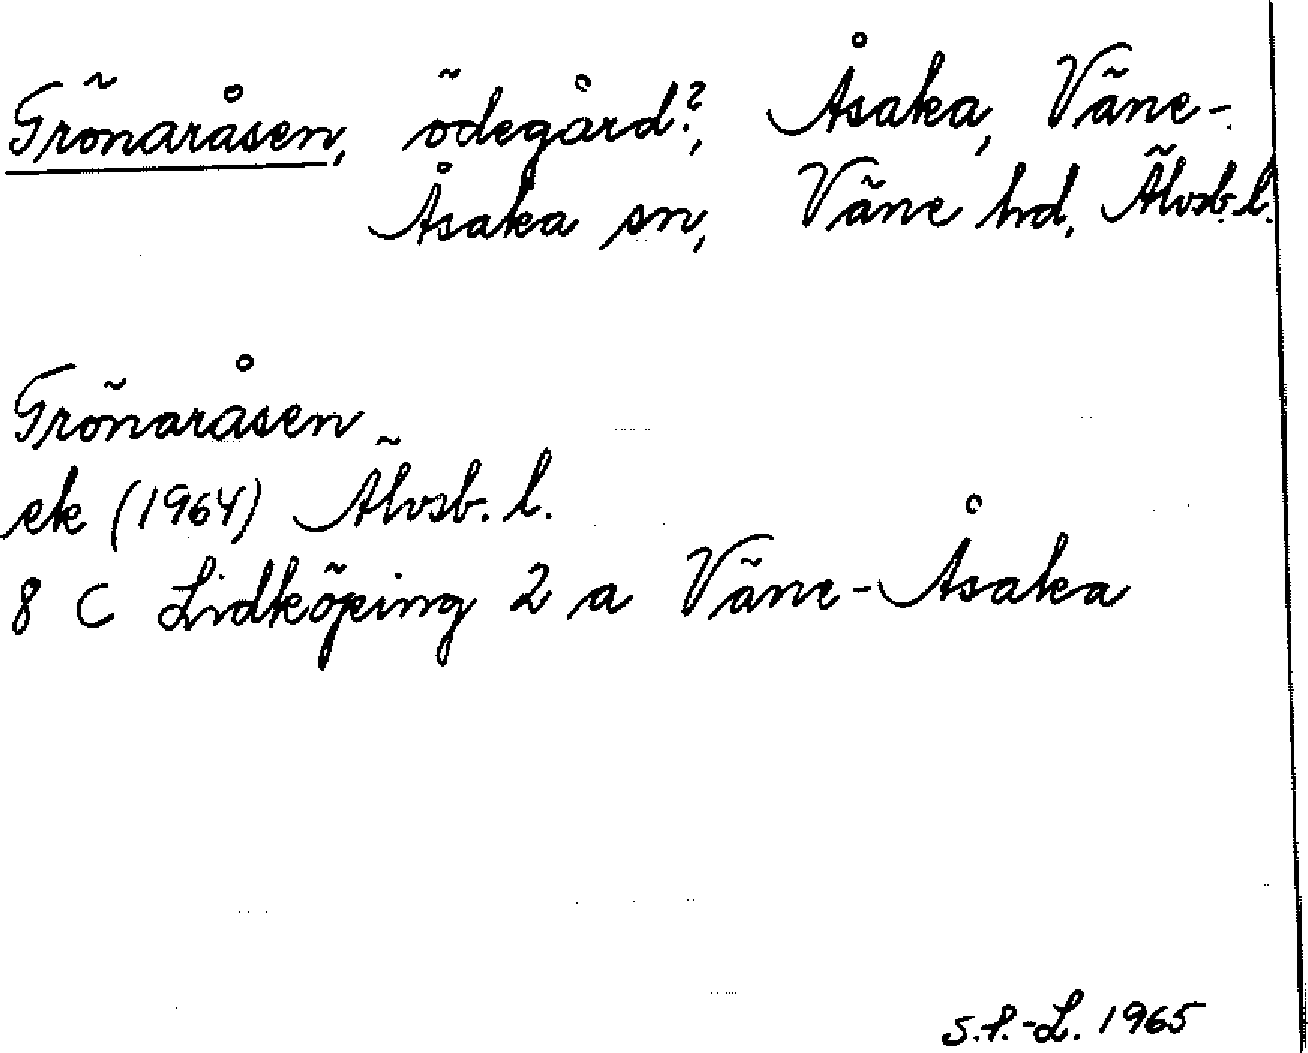 Grönaråsen, ödegård?, Åsaka, Väne-
Åsaka sn, Väne hd, Älvsb. l.
Grönaråsen
ek (1964) Älvsb. l.
8 C Lidköping 2 a Väne-Åsaka
S.f.-L. 1965